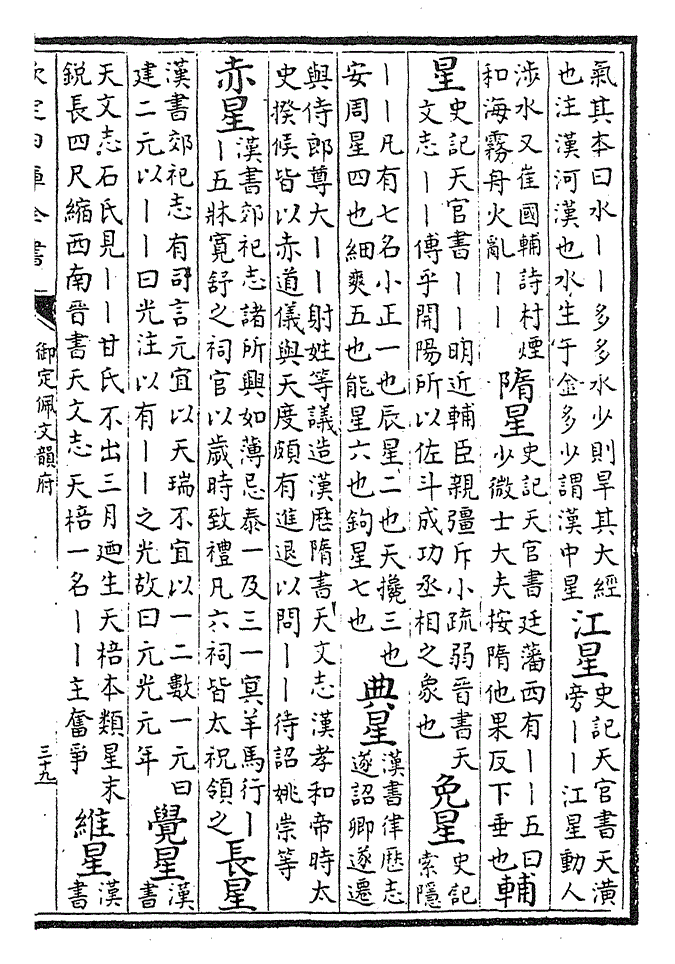 氣其本曰水丨丨多多水少則旱其大經
也注漢河漢也水生于金多少謂漢中星
江星
史記天官書天潢
旁丨丨江星動人
涉水又崔國輔詩村煙
和海霧舟火亂丨丨
隋星
史記天官書廷藩西有丨丨五曰
少微士大夫按隋他果反下垂也
輔
星
史記天官書丨丨明近輔臣親彊斥小疏弱晉書天
文志丨丨傅乎開陽所以佐斗成功丞相之象也
免星
史記
索隱
丨丨凡有七名小正一也辰星二也天攙三也
安周星四也細爽五也能星六也鉤星七也
典星
漢書律歷志
遂詔卿遂遷
與侍郎尊大丨丨射姓等議造漢歷隋書天文志漢孝和帝時太
史揆候皆以赤道儀與天度頗有進退以問丨丨待詔姚崇等
赤星
漢書郊祀志諸所興如薄忌泰一及三一冥羊馬行丨
丨五牀寬舒之祠官以歲時致禮凡六祠皆太祝領之
長星
漢書郊祀志有司言元宜以天瑞不宜以一二數一元曰
建二元以丨丨曰光注以有丨丨之光故曰元光元年
覺星
漢
書
天文志石氏見丨丨甘氏不出三月廼生天棓本類星末
銳長四尺縮西南晉書天文志天棓一名丨丨主奮爭
維星
漢
書
欽定四庫全書
御定佩文韻府
三十九